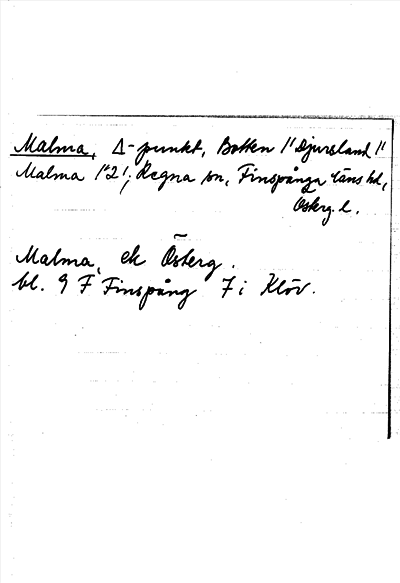 Malma, Δ-punkt, Botten 1" Djursland 1"
Malma 1"2', Regna sn, Finspånga läns hd,
Österg. l.
Malma, ek Österg.
bl. 9 F Finspång 7 i Klöv.